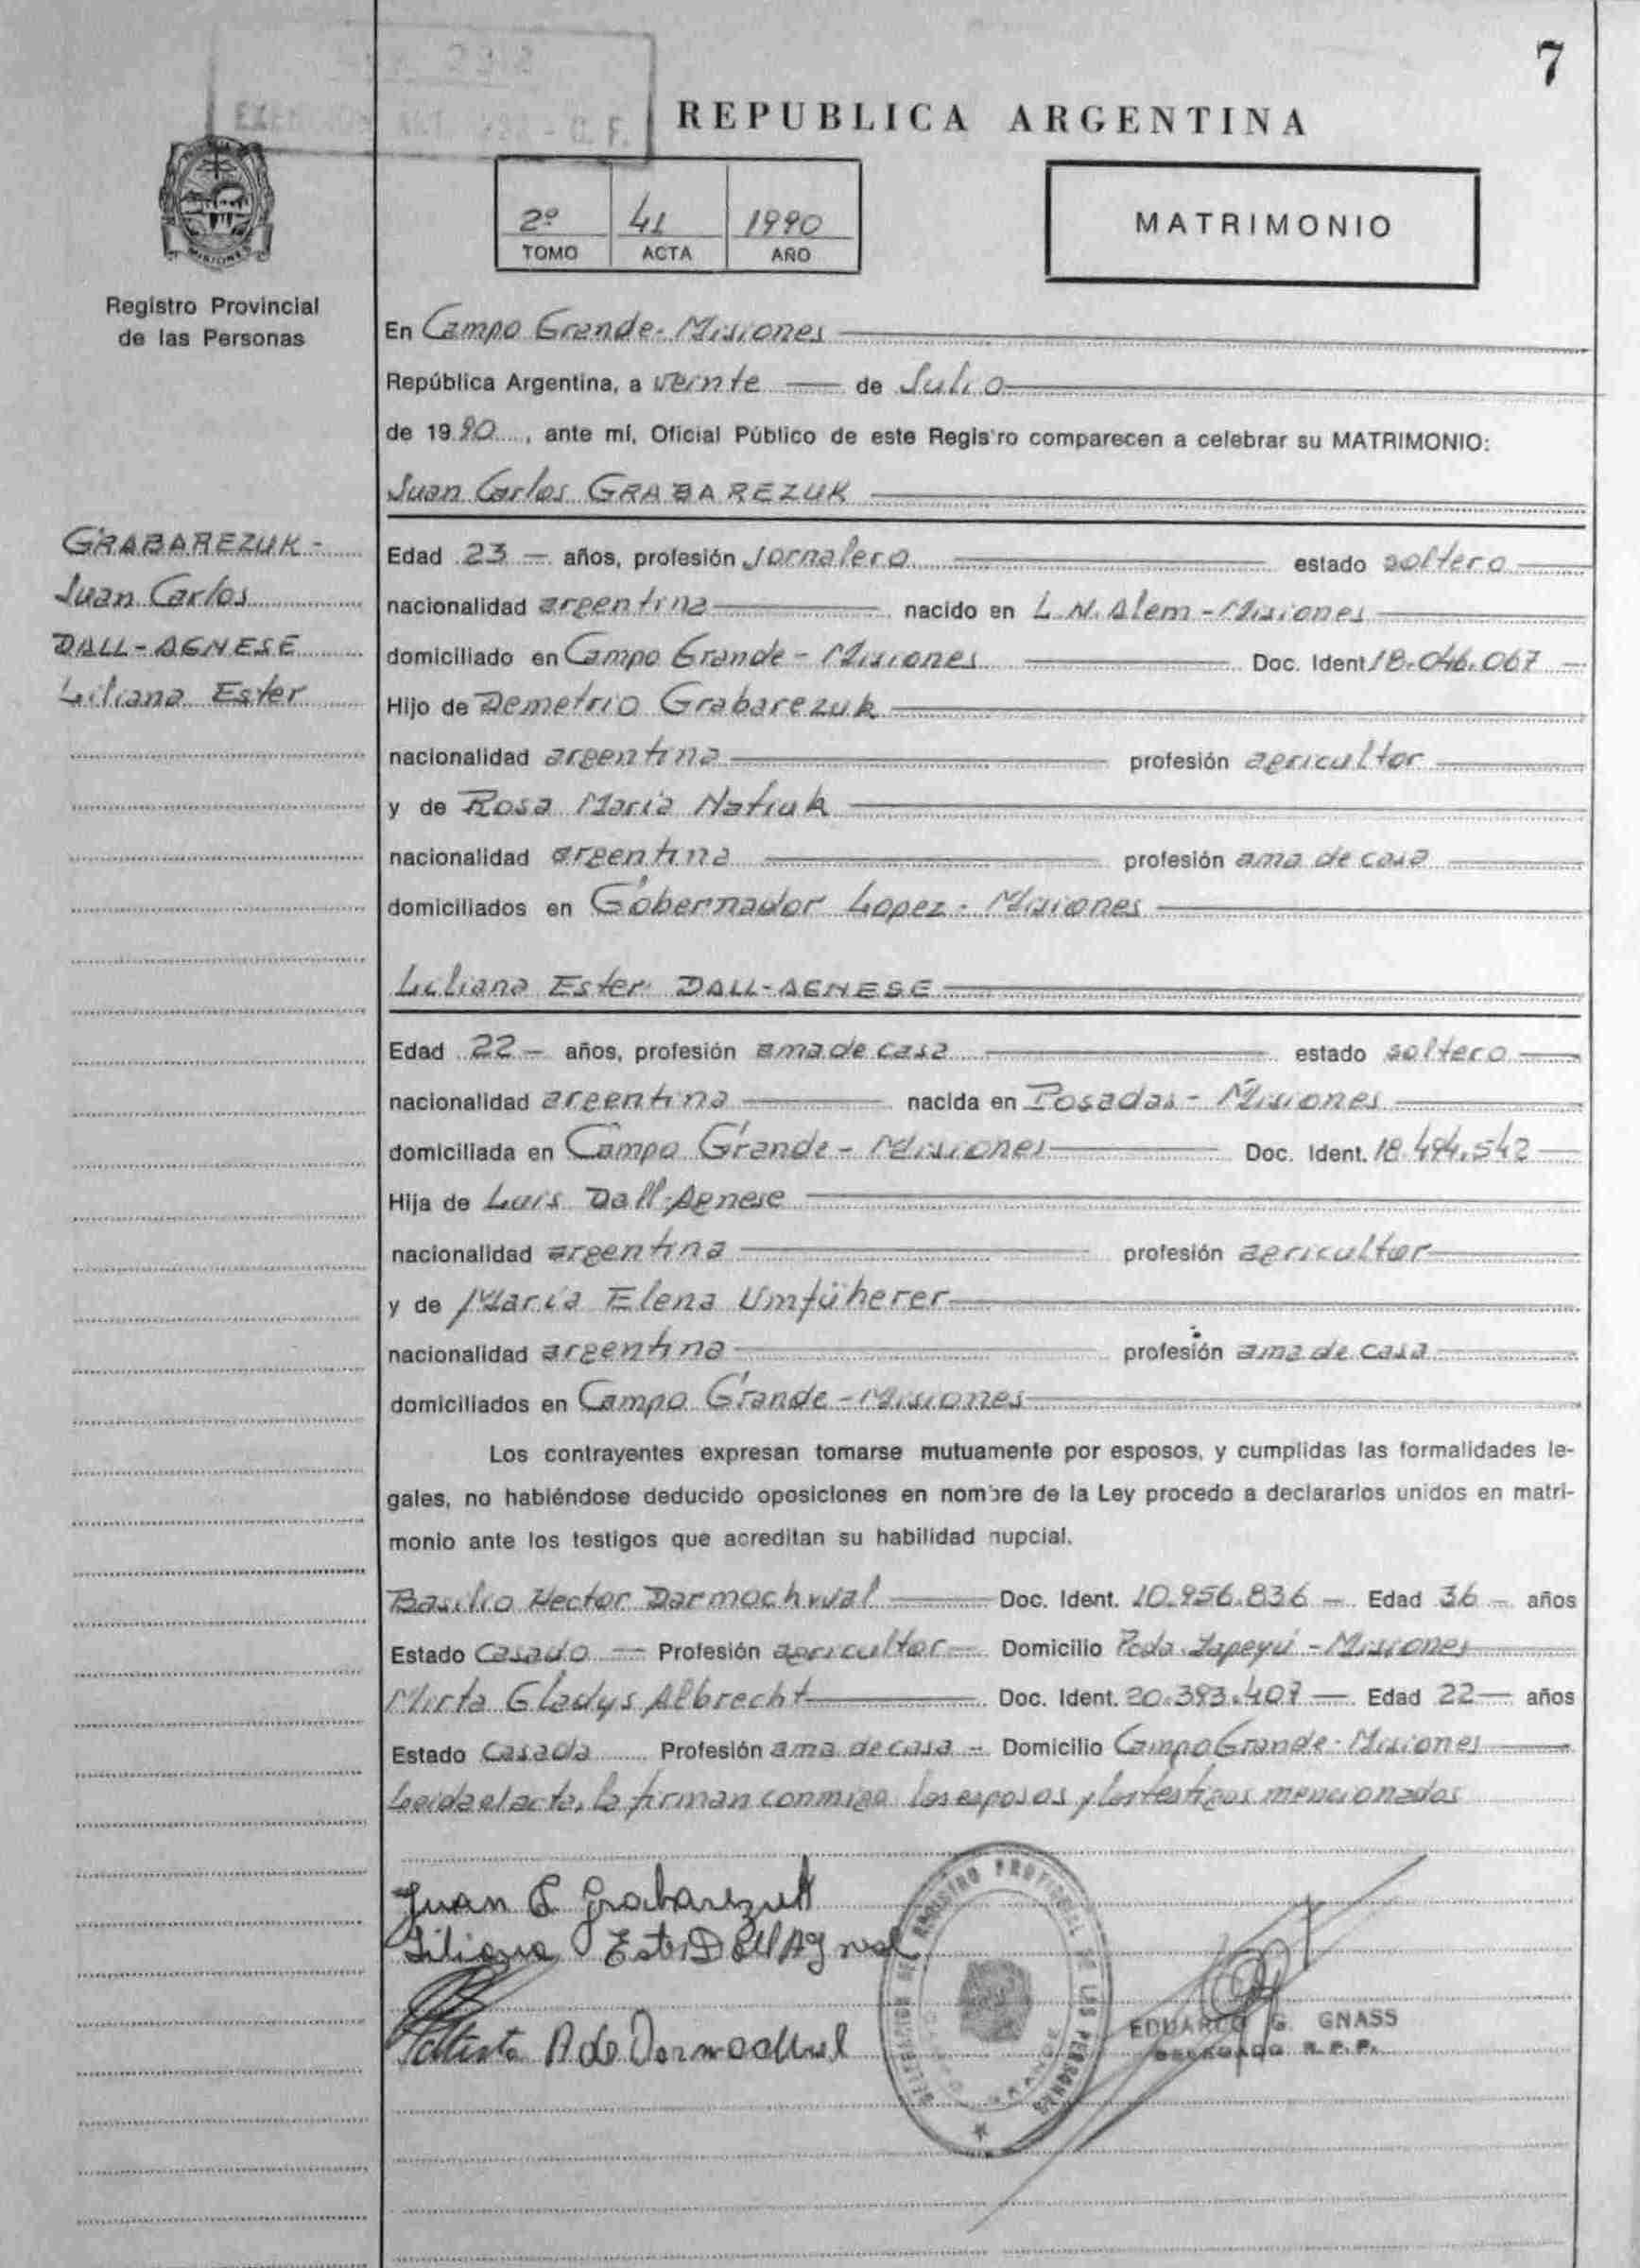 7
REPUBLICA ARGENTINA
2º 41 1990
TOMO ACTA AÑO
MATRIMONIO
MISIONES
Registro Provincial
de las Personas
En Campo Grande - Misiones
República Argentina, a veinte de Julio
de 1990, ante mí, Oficial Público de este Registro comparecen a celebrar su MATRIMONIO:
Juan Carlos GRABAREZUK
GRABAREZUK -
Juan Carlos
DALL-AGNESE
Liliana Ester
Edad 23 años, profesión Jornalero estado soltero
nacionalidad argentina nacido en L.N. Alem - Misiones
domiciliado en Campo Grande - Misiones Doc. Ident. 18.046.067
Hijo de Demetrio Grabarezuk
nacionalidad argentina profesión agricultor
y de Rosa María Natiuk
nacionalidad argentina profesión ama de casa
domiciliados en Gobernador Lopez - Misiones
Liliana Ester DALL-AGNESE
Edad 22 años, profesión ama de casa estado soltero
nacionalidad argentina nacida en Posadas - Misiones
domiciliada en Campo Grande - Misiones Doc. Ident. 18.494.542
Hija de Luis Dall-Agnese
nacionalidad argentina profesión agricultor
y de María Elena Umfüherer
nacionalidad argentina profesión ama de casa
domiciliados en Campo Grande - Misiones
Los contrayentes expresan tomarse mutuamente por esposos, y cumplidas las formalidades le-
gales, no habiéndose deducido oposiciones en nombre de la Ley procedo a declararlos unidos en matri-
monio ante los testigos que acreditan su habilidad nupcial.
Basilio Hector Darmochwal Doc. Ident. 10.956.836 Edad 36 años
Estado Casado Profesión agricultor Domicilio Pcda. Yapeyú - Misiones
Mirta Gladys Albrecht Doc. Ident. 20.393.407 Edad 22 años
Estado Casada Profesión ama de casa Domicilio Campo Grande - Misiones
Leida el acta, la firman conmigo los esposos y los testigos mencionados
Juan C Grabarezuk
Liliana Ester Dall Agnese
A de Darmochwal
DELEGACION DEL REGISTRO PROVINCIAL DE LAS PERSONAS
CAMPO GRANDE
EDUARDO G. GNASS
DELEGADO R.P.P.